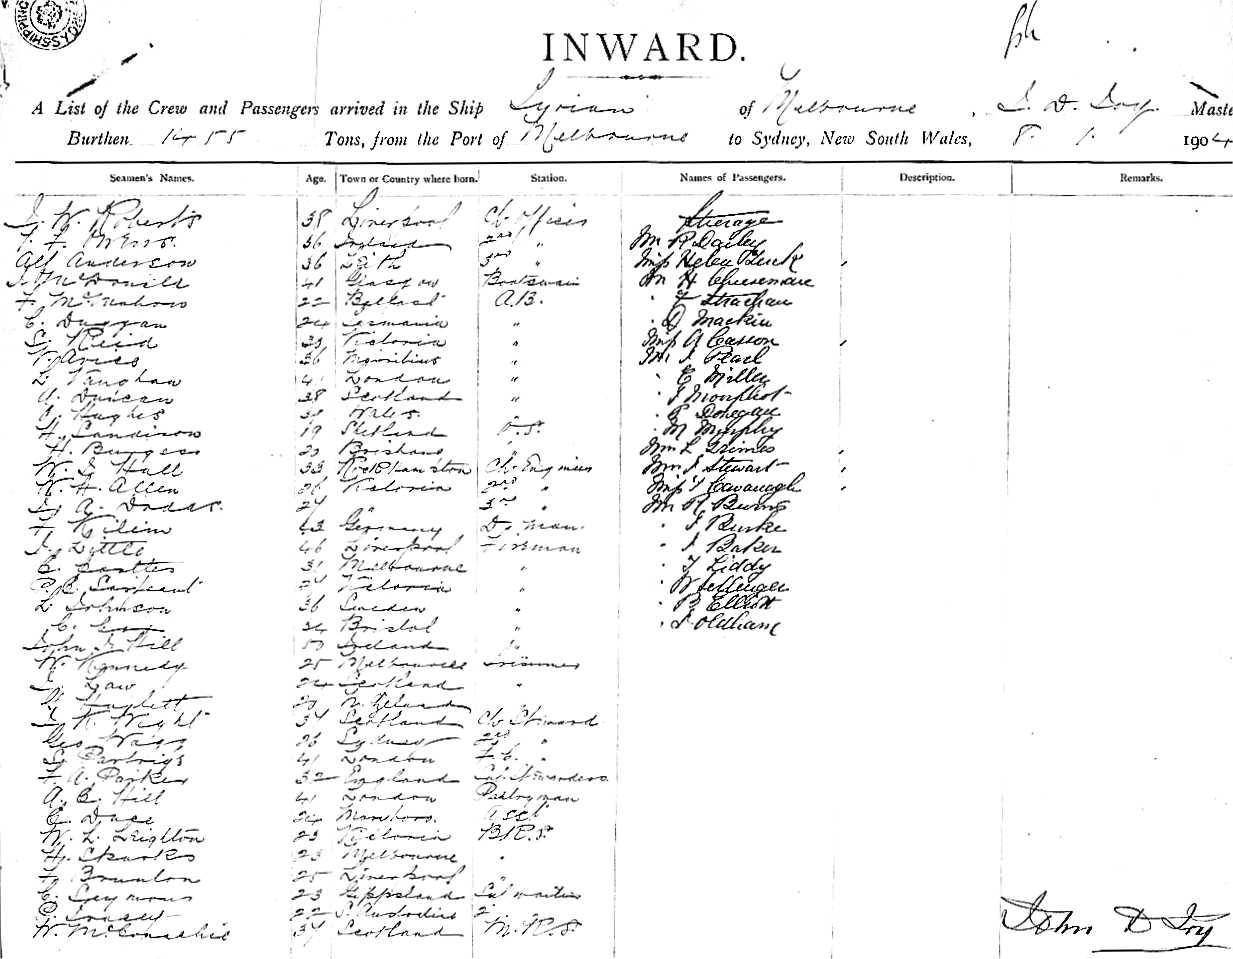 INWARD.
A List of the Crew and Passengers arrived in the Ship Syrian of Melbourne, J. D. Joy. Maste
Burthen 1455 Tons, from the Port of Melbourne to Sydney, New South Wales, 8. 1. 1904
Seamen's Names. Age. Town or Country where born. Station. Names of Passengers. Description. Remarks.
J. W. Roberts 38 Liverpool Ch Officer Steerage
36 Ireland 2nd " Mr P. Dailey
Alf Anderson 36 Leith 3rd " Miss Helen
J. McDonild 41 Glasgow Boatswain Mr H Cheeseman
F. McMahon 22 Belfast A.B. " F Strachan
C. Duggan 24 Tasmania " " D Mackin
Reid Victoria " Miss A Casson
36 Mauritius " Mr J Pearl
L. Vaughan 41 London " " E Miller
A. Duncan 38 Scotland " " J
C. Hughes Wales " P Donegan
H. Sandison 19 Shetland O.S. " M Murphy
H. Burgess 20 Brisbane Mrs L Grimes
W. J. Hall 33 Rockhampton Ch. Engineer Mrs J Stewart
W. H. Allen 26 Victoria 2nd " Miss Cavanagh
A. 24 " 3rd " Mr R Burns
F. 43 Germany D. man. " J Burke
J. Little 46 Liverpool Fireman " J Baker
C. 31 Melbourne " " Liddy
Sargeant 24 Victoria "
L. Johnson 36 Sweden " " B Elliott
C. 34 Bristol " " J Oldham
John J. Hill 50 Ireland "
W. Kennedy 25 Melbourne Trimmer
Law 24 Scotland "
Haylett 20 N. Zeland
J. K. Wight 34 Scotland Ch Steward
Geo Wagg 26 Sydney 2nd "
Partrige 41 London F. C. "
F. A. Parker 32 England
A. E. Hill 41 London Pantryman
24 Asst
W. L. Leighton 23 Victoria B.R.S.
H. Sparkes 23 Melbourne "
F. Brunton 25 Liverpool "
C. Seymour 23 Gippsland Sal waiter
22 S. Australia 2
W. McConachie 34 Scotland M.R.S.
John D Joy